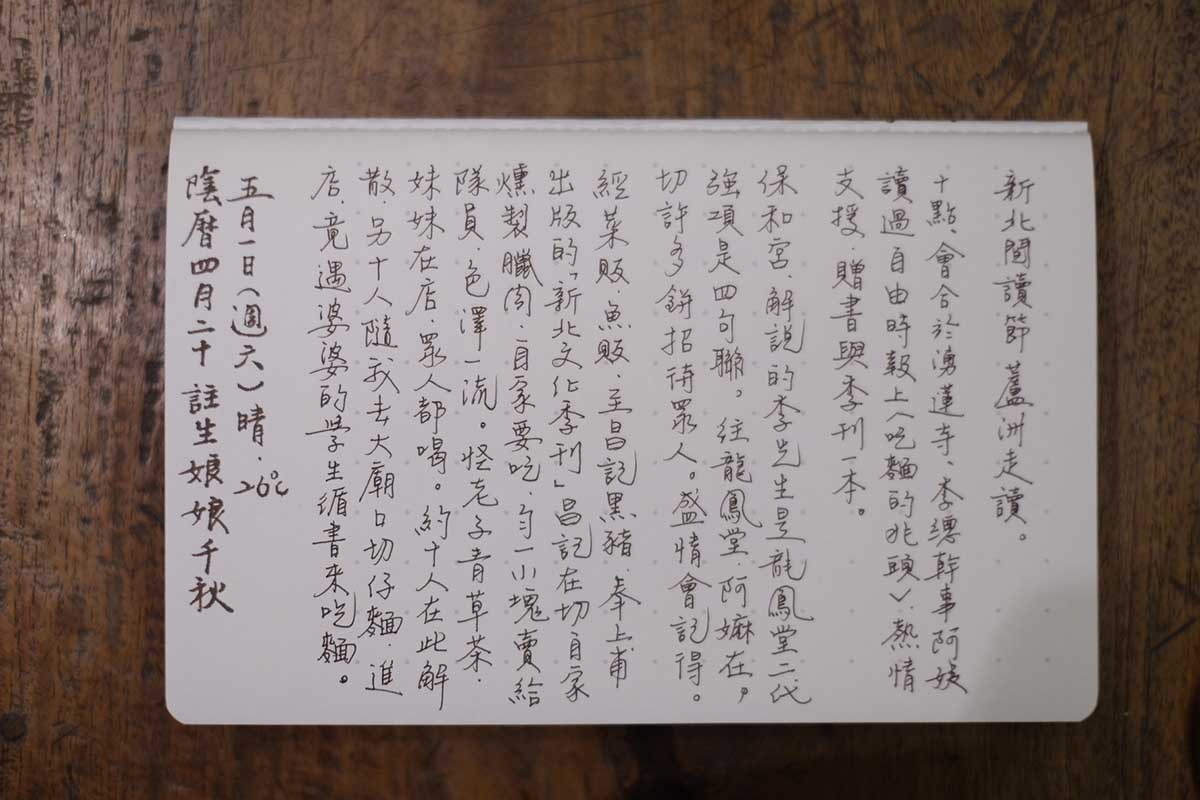 新北閱讀節蘆洲走讀。
十點、會合於湧蓮寺、李總幹事阿娥
讀過自由時報上〈吃麵的兆頭〉、熱情
支援、贈書與季刊一本。
保和宮、解說的李先生是龍鳳堂二代
強項是四句聯。往龍鳳堂、阿嬤在，
切許多餅招待眾人。盛情會記得。
經菜販、魚販、至昌記黑豬、奉上甫
出版的「新北文化季刊」昌記在切自家
燻製臘肉、自家要吃、勻一小塊賣給
隊員、色澤一流。怪老子青草茶、
妹妹在店、眾人都喝。約十人在此解
散、另十人隨我去大廟口切仔麵、進
店、竟遇婆婆的學生循書來吃麵。
五月一日(週六)晴、26℃
陰曆四月二十 註生娘娘千秋